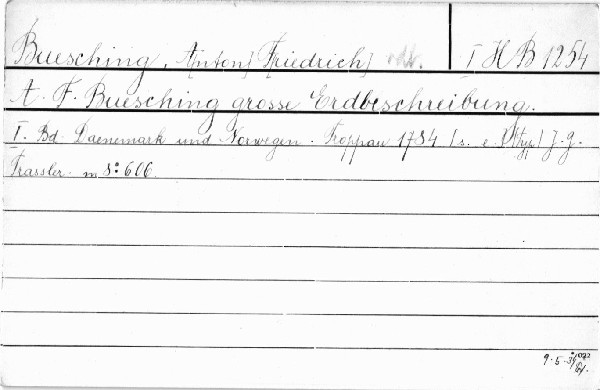 Buesching, A[nton] F[riedrich] I H B 1254
A. F. Buesching grosse Erdbeschreibung.
I. Bd. Daenemark und Norwegen. Troppau 1784 (s. e.) (typ) J. G.
Trassler. m 8° 606.
9. 5.